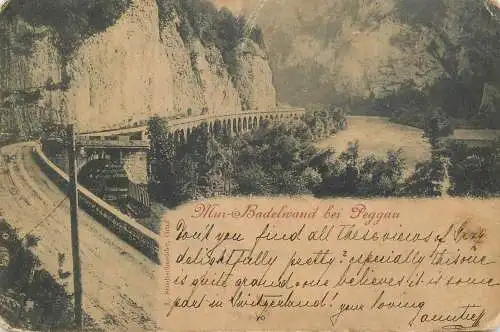 Mur-Badelwand bei Peggau
Don't you find all these views of Graz
delightfully pretty? especially this one
is quite grand one believes it is some
part in Switzerland! your loving